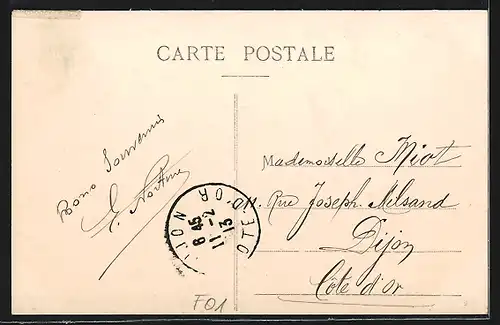 CARTE POSTALE
Bons Souvenirs
Mademoiselle Miot
Rue Joseph Milsand
Dijon
Côte d'or
IJON
8 45
11 - 2
13
OTE - OR
F01